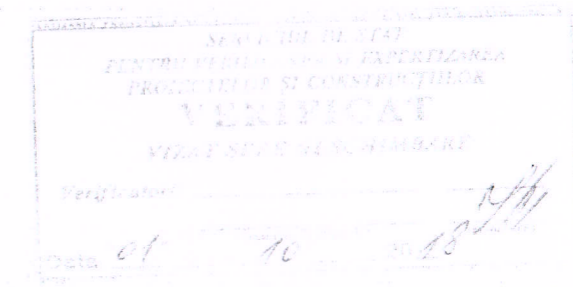 SERVICIUL DE STAT
PENTRU VERIFICAREA ȘI EXPERTIZAREA
PROIECTELOR ȘI CONSTRUCȚIILOR
VERIFICAT
VIZAT SPRE NESCHIMBARE
Verificator
Data 01 10 2018